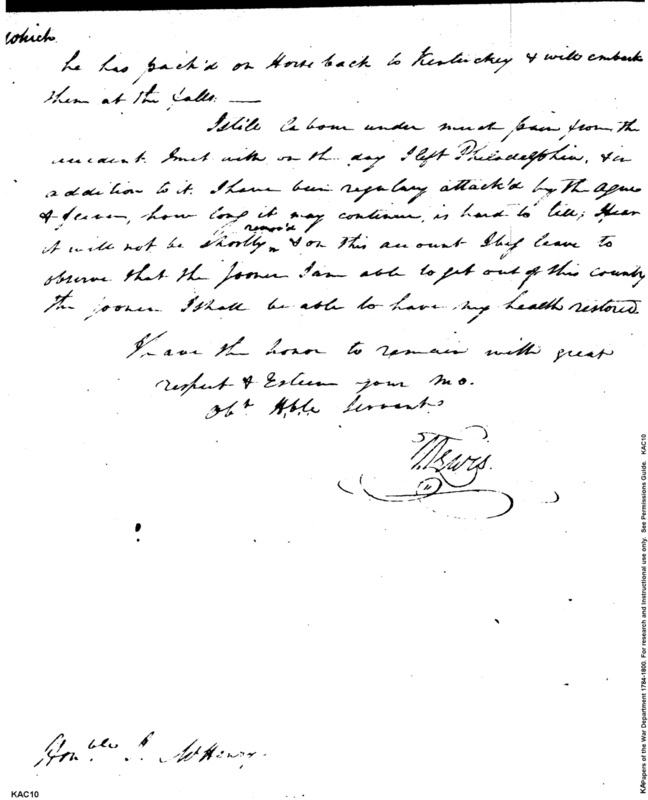 which
he has pack'd on Horseback to Kentuckey & will embark
them at the falls. —
I still labour under much pain from the
accident I met with on the day I left Philadelphia, & in
addition to it. I have been regulary attack'd by the ague
& fever, how long it may continue, is hard to tell; I fear
remov'd
it will not be shortly ^ & on this account I beg leave to
observe that the sooner I am able to get out of this country
the sooner I shall be able to have my health restored.
I have the honor to remain with great
respect & Esteem your mo.
Obt Hble Servant
T. Lewis.
Honble J. McHenry.
KAC10
KAPapers of the War Department 1784-1800. For research and instructional use only. See Permissions Guide. KAC10